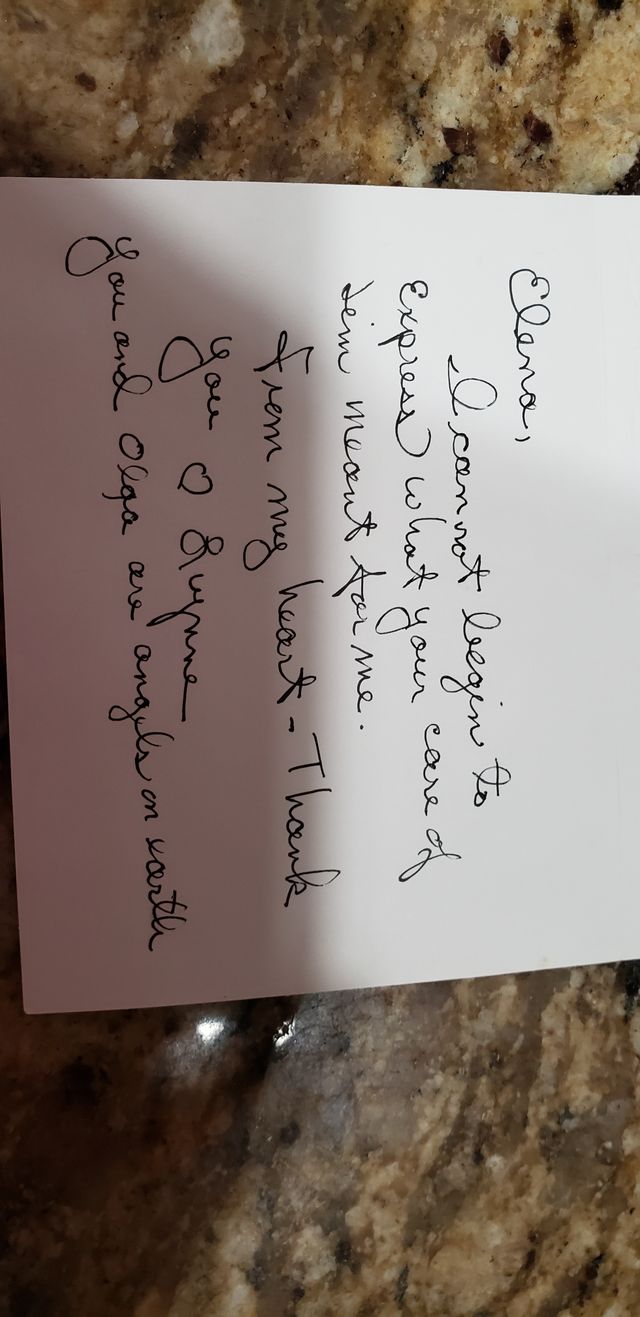 Elena,
I cannot begin to
Express what your care of
Jim meant for me.
From my heart - Thank
you ♡ Lynne
You and Olga are angels on earth